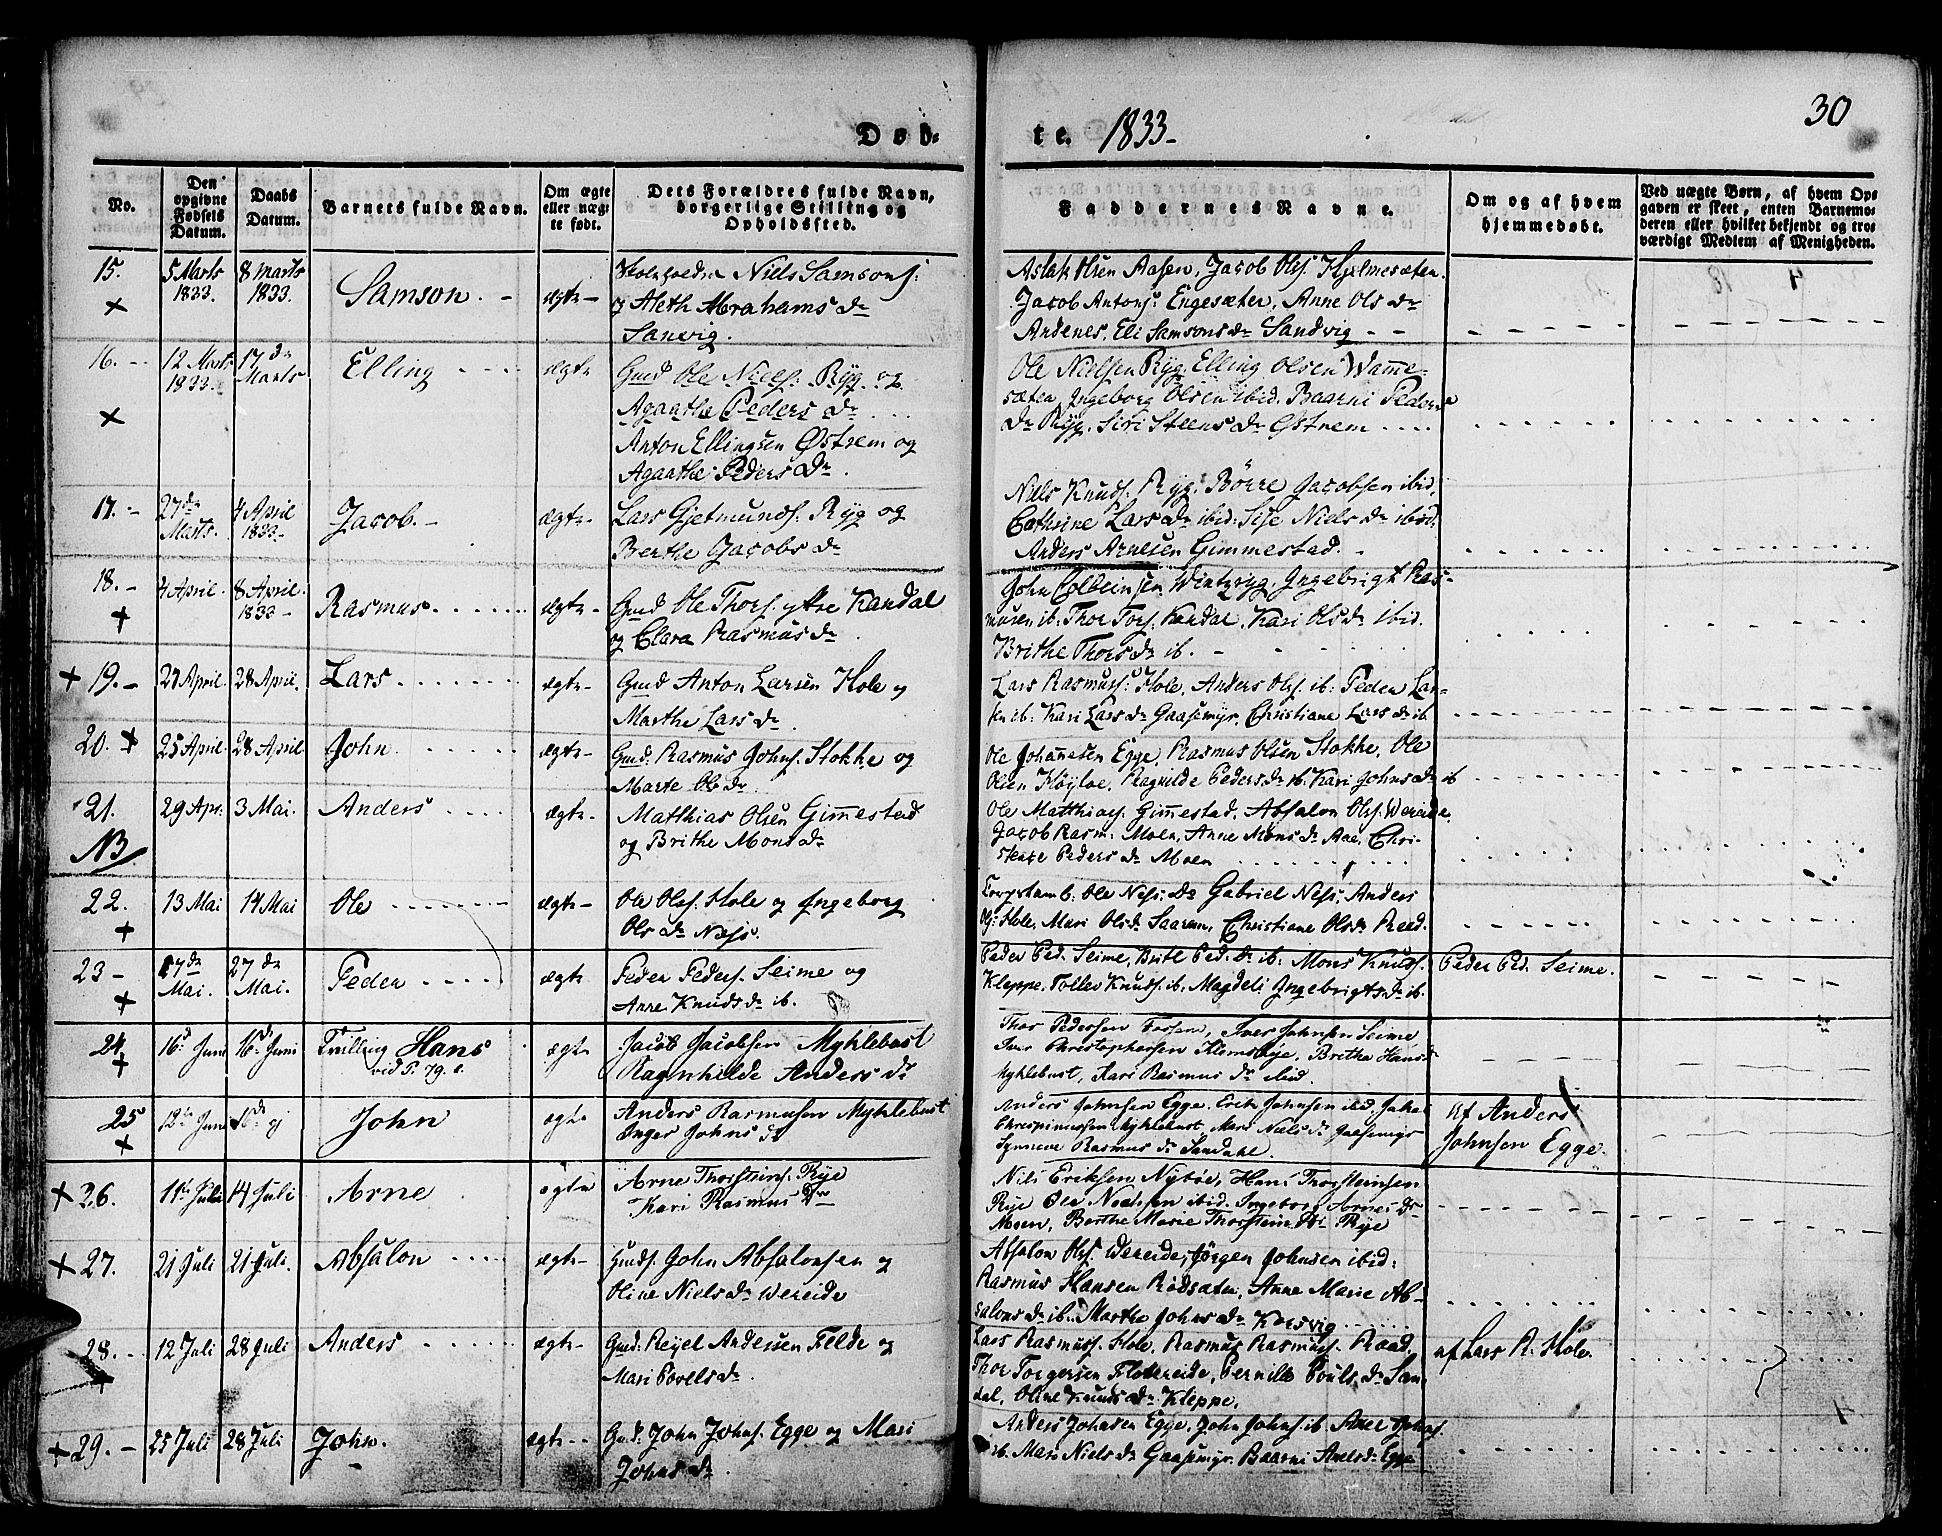 30
Døb-
te. 1833-
No.
Den opgivne Fødsels Datum.
Daabs Datum.
Barnets fulde Navn.
Om ægte eller uægte født.
Dets Forældres fulde Navn, borgerlige Stilling og Opholdsfted.
Faddernes Navne.
Om og af hvem hjemmedøbt.
Ved uægte Børn, af hvem Opgaven er skeet, enten Barnemoderen eller hvilket bekjendt og troværdigt Medlem af Menigheden.
15. 5 Marts 8 Marts
1833. 1833.
Samson. ægte
Niels Samsons:
og Aleth Abrahams Dr
Sanvig.
Aslak Olsen Aasen, Jacob Ols: Hjelmesæten.
Jacob Antons: Engesæter, Anne Ols Dr
Andenes, Eli Samsons Dr Sandvig
16. 12 Marts 17 de
1833. Marts
Elling ægte
Gmd Ole Niels: Ryg og
Agaathe Peders Dr
Anton Ellingsen Østrem og
Agaathe Peders Dr.
Ole Nielsen Ryg, Elling Olsen Wamme-
sæten, Ingeborg Olsen ibid. Baarni Peders
Dr Ryg. Siri Steens Dr Østrem
17. 27 de 4 April
Marts. 1833.
Jacob. ægte
Lars Gjetmunds: Ryg og
Berthe Jacobs Dr
Niels Knuds. Ryg. Børre Jacobsen ibid.
Cathrine Lars Dr ibid: Sise Niels Dr ibid.
Anders Arnesen Gimmestad.
18. 4 April 8 April
1833
Rasmus ægte
Gmd Ole Thors. ytre Kandal
og Clara Rasmus Dr
John Colbeinsen Winteryg, Ingebrigt Ras-
musen ib: Thor Tors. Kandal. Kari Ols Dr ibid.
Brithe Thors Dr ib.
19. 27 April. 28 April.
Lars ægte
Gmd Anton Larsen Hole og
Marthe Lars Dr
Lars Rasmuss: Hole, Anders Ols. ib: Peder Lar-
sen ib: Kari Lars Dr Gaasemyr, Christiane Lars Dr ib
20. 25 April. 28 April
John ægte
Gmd: Rasmus Johns. Stokke og
Marte Ols Dr
Ole Johannesen Egge, Rasmus Olsen Stokke, Ole
Olsen Høyloe, Ragnilde Peders Dr ib. Kari Johns Dr ib
21. 29 Apr: 3 Mai.
NB
Anders ægte
Matthias Olsen Gimmestad
og Brithe Mons Dr
Ole Matthias: Gimmestad, Absalon Ols. Wereide,
Jacob Rasm: Moen, Anne Mons Dr Aae, Chri-
stense Peders Dr Moen
22. 13 Mai 14 Mai
Ole ægte
Ole Ols. Hole og Ingeborg
Ols Dr Næss.
Ole Ness. Dr Gabriel Ness, Anders
Hole, Mari Ols Dr Saaren, Christiane Ols Dr Reed.
23 17 de 27 de
Mai Mai.
Peder ægte
Peder Peders. Seime og
Anne Knuds Dr ib.
Peder Ped. Seime, Brite Ped. Dr ib. Mons Knuss.
Kleppe. Tollev Knuss. ib. Magdeli Ingebrigts Dr ib.
Peder Ped. Seime.
24. 16 Juni 16 Juni
Tvilling Hans
vid P. 79.
ægte
Jacob Jacobsen Myklebust
Ragnhilde Anders Dr
Thor Pedersen Fossem, Iver Johnsen Seime
Iver Christophersen, Brithe Hans Dr
Myklebust, Kari Rasmus Dr ibid.
25 12te Juni
John ægte
Anders Rasmusen Myklebust
Inger Johns Dr
Anders Johnsen Egge. Erik Johnsen ibid,
Chrespinussen Myklebust, Mari Niels Dr Gaasemyr
Synneve Rasmus Dr Sandahl.
af Anders
Johnsen Egge.
26. 11te Juli 14 Juli
Arne ægte
Arne Thorsteins. Rye
Kari Rasmus Dr
Nils Eriksen Nybøe, Hans Thorsteinsen
Rye Ole Nielsen ibid. Ingeborg Arnes Dr
Moen, Berthe Marie Thorstein Dr Rye
27. 21 Juli 21 Juli.
Absalon ægte
Gmds. John Absalonsen og
Oline Niels Dr Wereide
Absalon Ols. Wereide, Jørgen Johnsen ibid:
Rasmus Hansen Rødsæten, Anne Marie Ab-
salons Dr ib. Marthe Johns Dr Korsvig
28. 12 Juli 28 Juli
Anders ægte
Gmd: Reyel Andersen Felde og
Mari Povels Dr
Lars Rasmuss. Hole, Rasmus Rasmuss. Raad,
Thor Torgersen Flotereide, Pernille Pouls. Dr San-
dal, Oline Knuds Dr Kleppe.
af Lars R. Hole.
29. 25 Juli 28 Juli
John. ægte
Gmd: John Johns. Egge og Mari
Johns Dr
Anders Johnsen Egge, John Johns. ib.
ib. Mari Niels Dr Gaasemyr. Baarni Axels Dr Egge